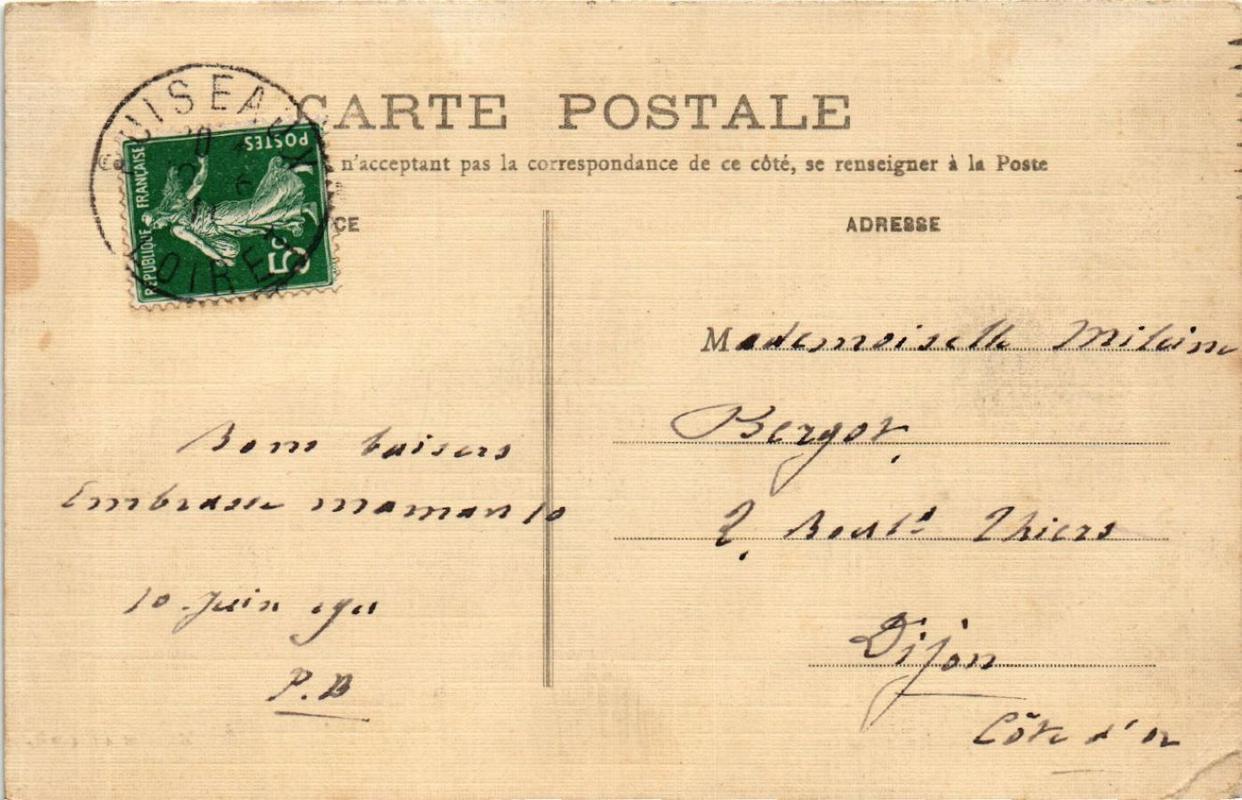 CARTE POSTALE
n'acceptant pas la correspondance de ce côté, se renseigner à la Poste
CE
ADRESSE
PUISEAUX
LOIRET
RÉPUBLIQUE FRANÇAISE
POSTES
5c
Bons baisers
Embrasse maman
10 Juin 1911
P.B
Mademoiselle
Bergot
2, Boul.d Thiers
Dijon
Côte d'or